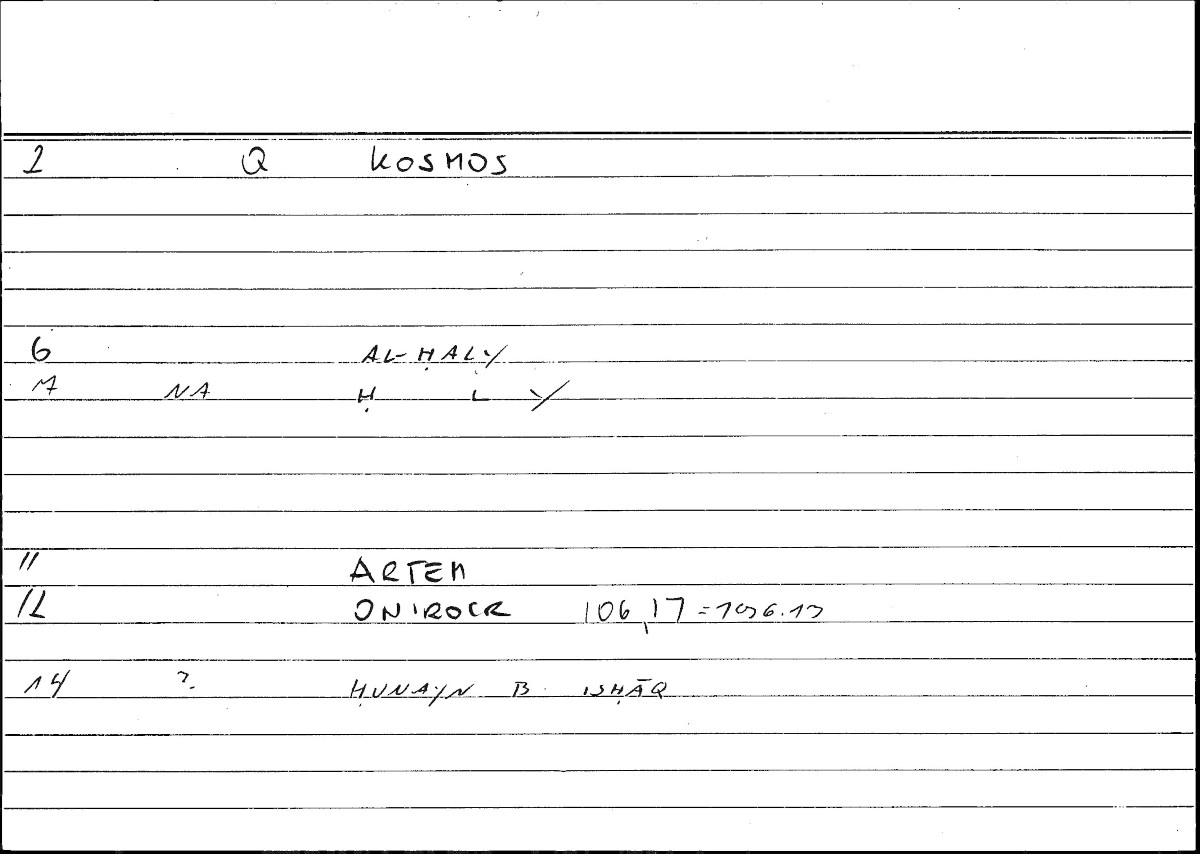 2 Q KOSMOS
6 AL-ḤALY
7 NA Ḥ L Y
11 ARTEM
12 ONIROCR 106,17 = 196.13
14 ? ḤUNAYN B ISḤĀQ